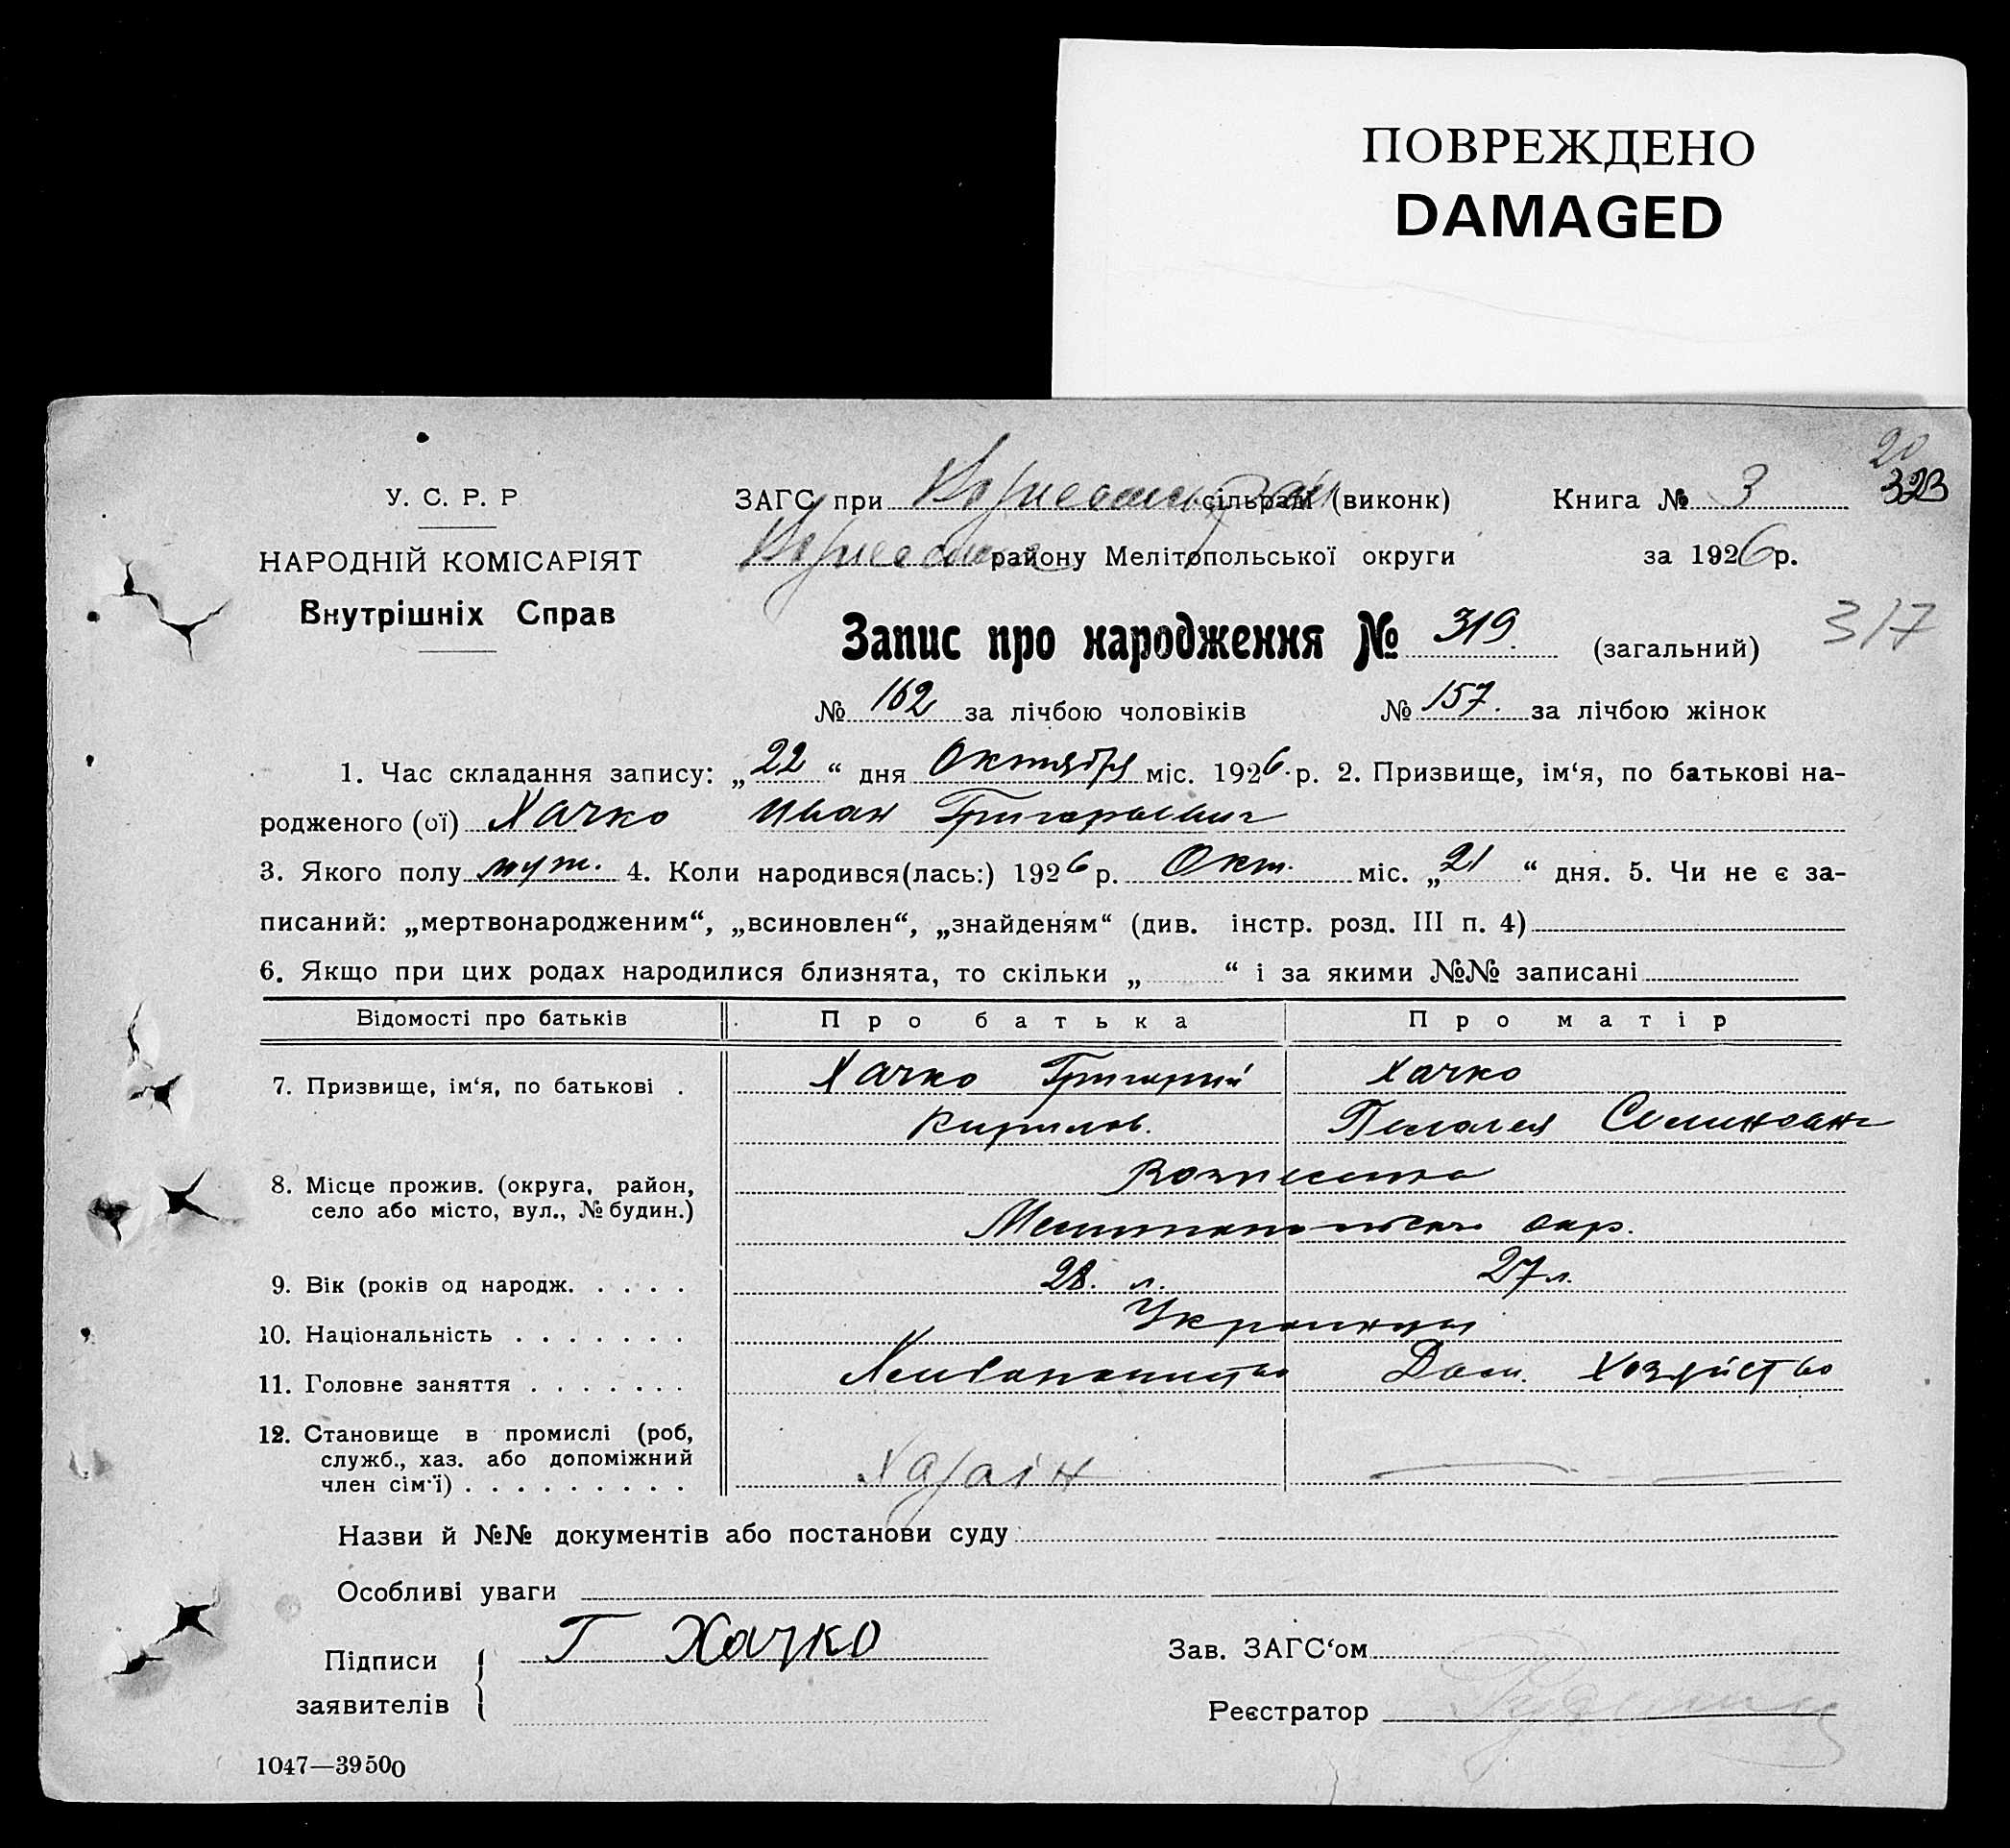 ПОВРЕЖДЕНО
DAMAGED
20
323
У. С. Р. Р
НАРОДНІЙ КОМІСАРІЯТ
Внутрішніх Справ
ЗАГС при сільраді (виконк) Книга № 3
району Мелітопольської округи за 1926 р.
Запис про народження № 319. (загальний) 317
№ 162 за лічбою чоловіків № 157. за лічбою жінок
1. Час складання запису: „22“ дня Октября міс. 1926 р. 2. Призвище, ім‘я, по батькові на-
родженого (ої) Хачко Иван Григорьевич
3. Якого полу муж. 4. Коли народився(лась:) 1926 р. Окт. міс. „21“ дня. 5. Чи не є за-
писаний: „мертвонародженим“, „всиновлен“, „знайденям“ (див. інстр. розд. III п. 4)
6. Якщо при цих родах народилися близнята, то скільки „ “ і за якими №№ записані
Відомості про батьків Про батька Про матір
7. Призвище, ім‘я, по батькові . Хачко Григорий Хачко
Кирилов. Пелагея
8. Місце прожив. (округа, район,
село або місто, вул., № будин.)
Вознесенка
Мелитопольск. окр.
9. Вік (років од народж. . . . . 28. л. 27 л.
10. Національність . . . . . . . Украинцы
11. Головне заняття . . . . . . . Хлебопашество Дом. Хозяйство
12. Становище в промислі (роб,
служб., хаз. або допоміжний
член сім‘ї) . . . . . . . . . Хазаін —
Назви й №№ документів або постанови суду
Особливі уваги
Підписи
заявителів
Г Хачко
Зав. ЗАГС‘ом
Реєстратор
1047—39500